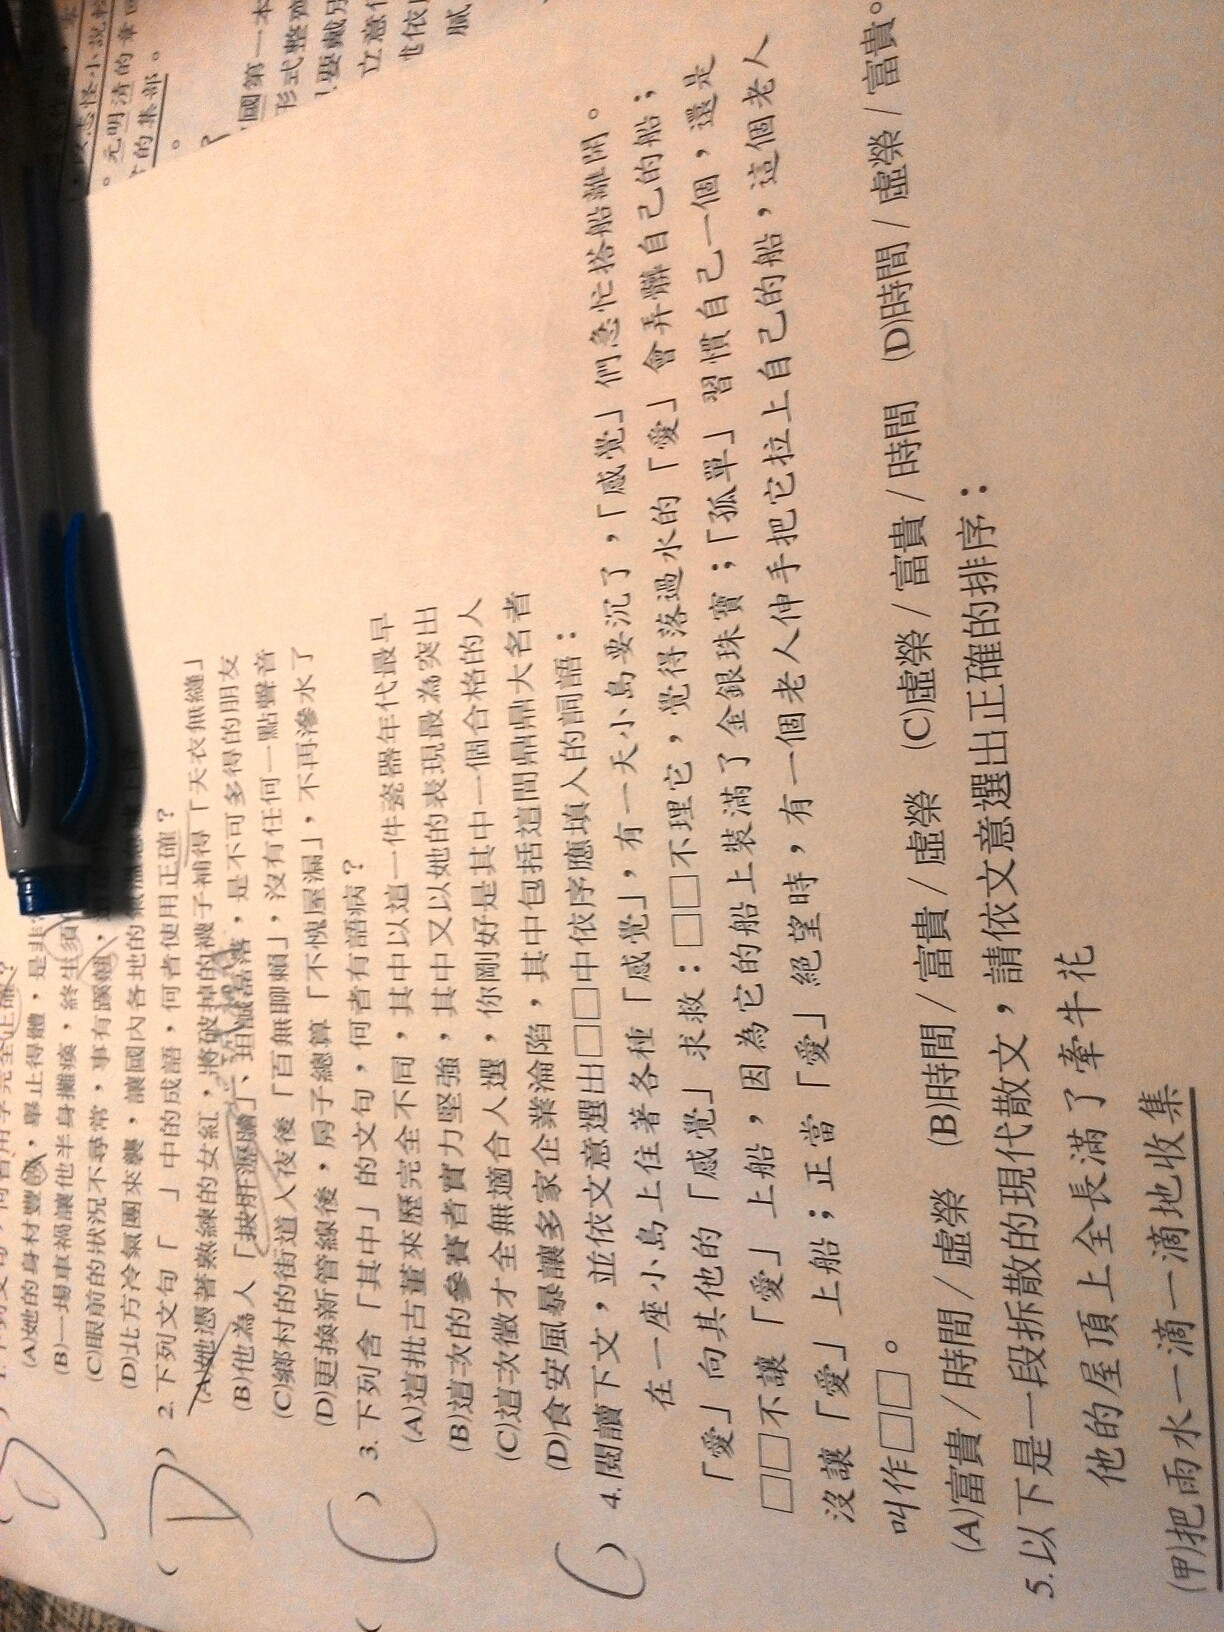 (A)她的身材豐腴，舉止得體，是非
(B)一場車禍讓他半身攤瘓，終生須
(C)眼前的狀況不尋常，事有蹊蹺，
(D)北方冷氣團來襲，讓國內各地的氣溫急
2.下列文句「 」中的成語，何者使用正確？
(A)她憑著熟練的女紅，將破掉的襪子補得「天衣無縫」
(B)他為人「披肝瀝膽」、坦誠磊落，是不可多得的朋友
(C)鄉村的街道入夜後「百無聊賴」，沒有任何一點聲音
(D)更換新管線後，房子總算「不愧屋漏」，不再滲水了
3.下列含「其中」的文句，何者有語病？
(A)這批古董來歷完全不同，其中以這一件瓷器年代最早
(B)這次的參賽者實力堅強，其中又以她的表現最為突出
(C)這次徵才全無適合人選，你剛好是其中一個合格的人
(D)食安風暴讓多家企業淪陷，其中包括這間鼎鼎大名者
4.閱讀下文，並依文意選出□□中依序應填入的詞語：
在一座小島上住著各種「感覺」，有一天小島要沉了，「感覺」們急忙搭船離開。
「愛」向其他的「感覺」求救：□□不理它，覺得落過水的「愛」會弄髒自己的船；
□□不讓「愛」上船，因為它的船上裝滿了金銀珠寶；「孤單」習慣自己一個，還是
沒讓「愛」上船；正當「愛」絕望時，有一個老人伸手把它拉上自己的船，這個老人
叫作□□。
(A)富貴/時間/虛榮 (B)時間/富貴/虛榮 (C)虛榮/富貴/時間 (D)時間/虛榮/富貴。
5.以下是一段拆散的現代散文，請依文意選出正確的排序：
他的屋頂上全長滿了牽牛花
(甲)把雨水一滴一滴地收集
國第一本
形式整齊
要戴足
立意
也依
膩
以志怪小說較
。元明清的章回
的集部。
D
C
C